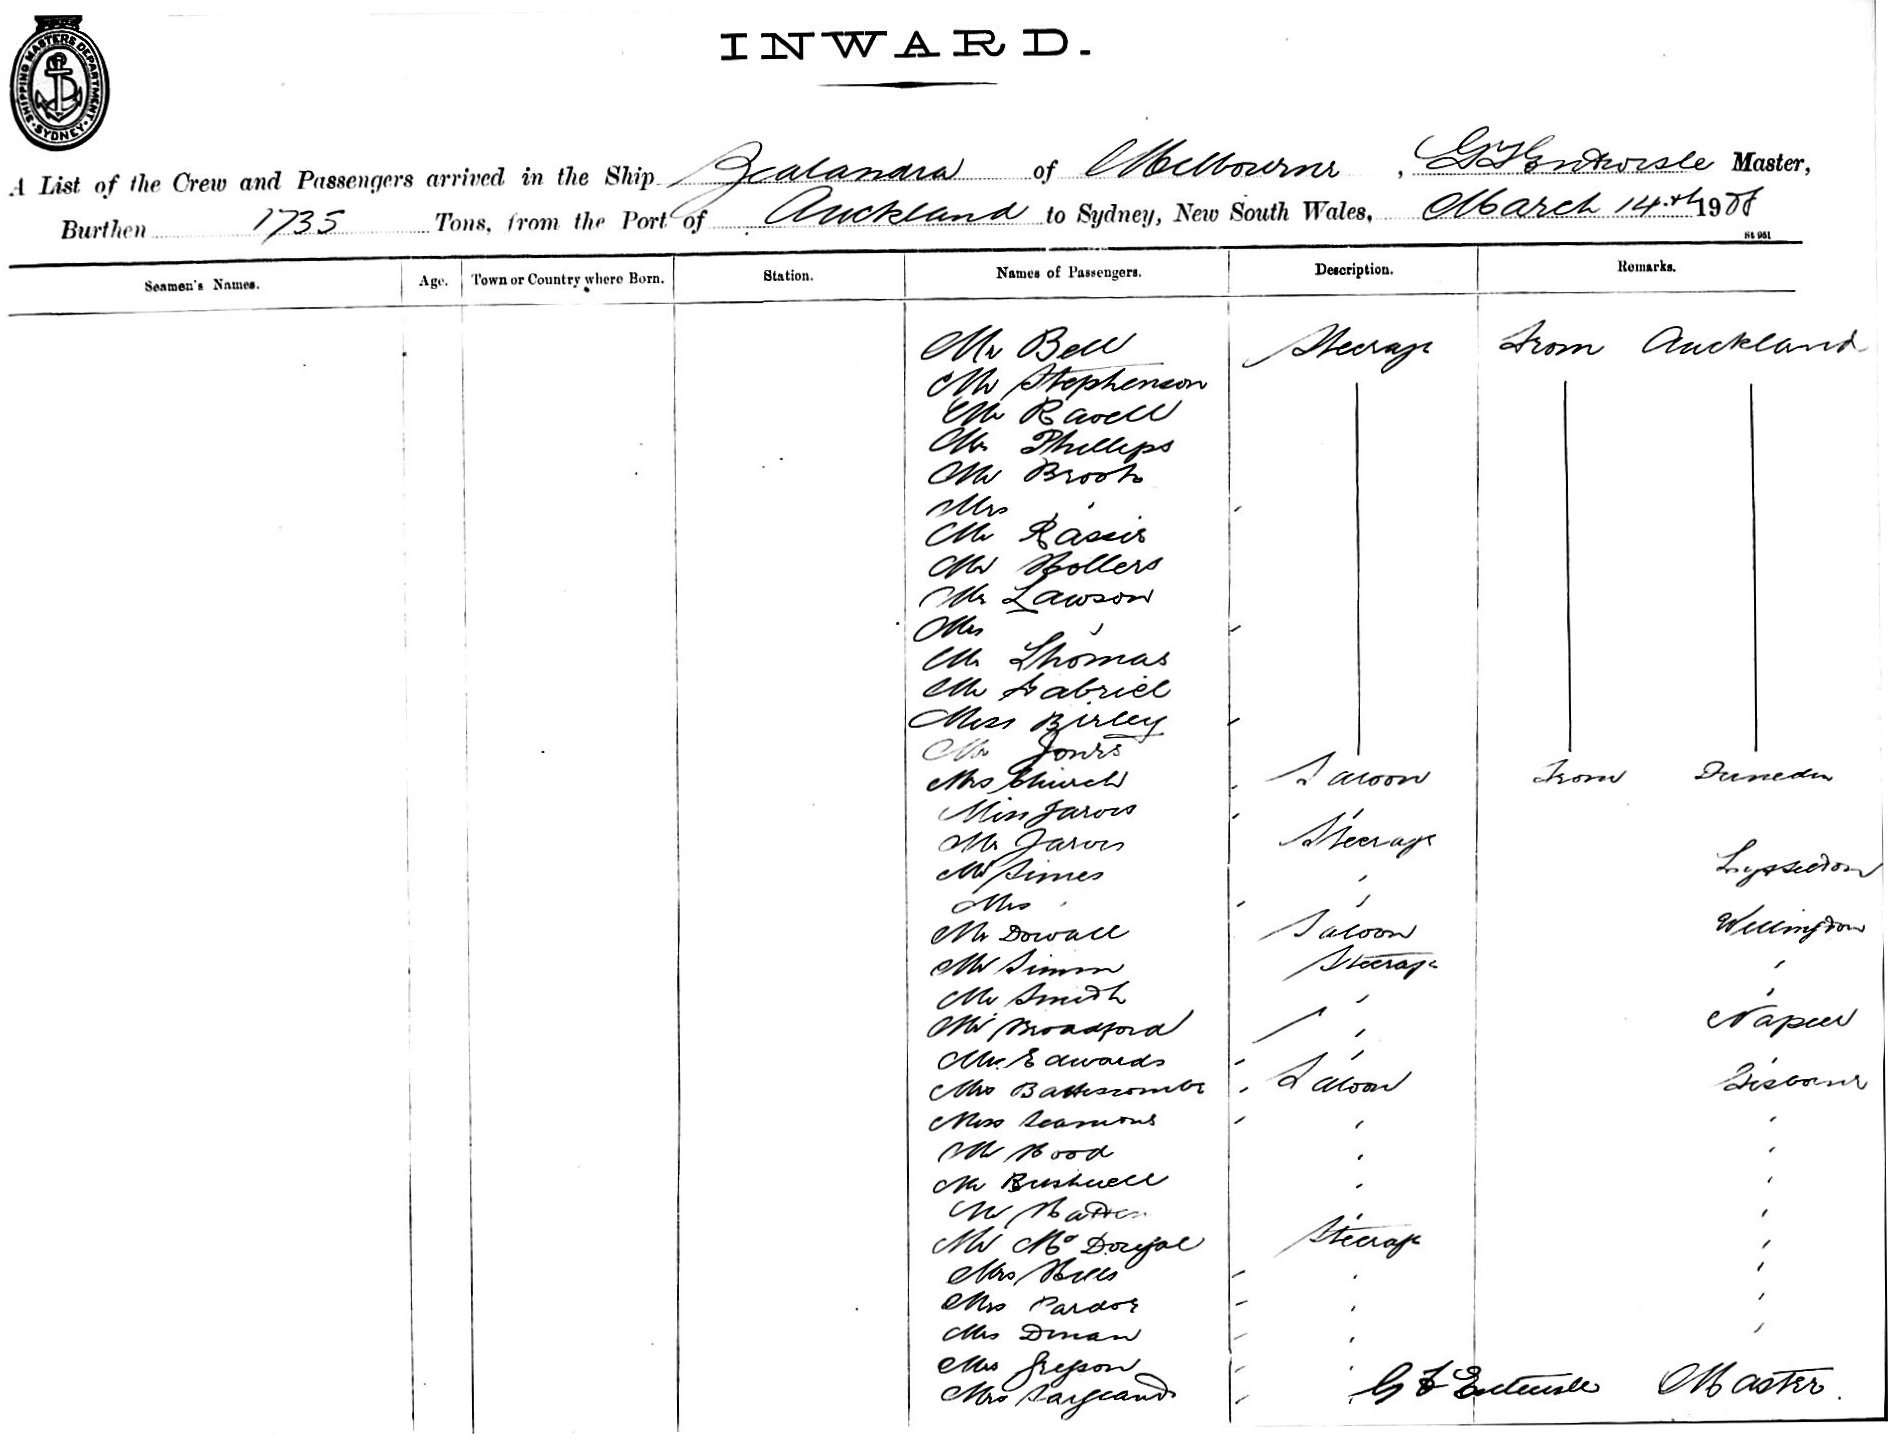 SHIPPING MASTERS DEPARTMENT. SYDNEY
INWARD.
A List of the Crew and Passengers arrived in the Ship Zealandia of Melbourne, G F Entwisle Master,
Burthen 1735 Tons, from the Port of Auckland to Sydney, New South Wales, March 14th 19
St 951
Seamen's Names. Age. Town or Country where Born. Station. Names of Passengers. Description. Remarks.
Mr Bell Steerage From Auckland
Mr Stephenson
Mr Ravell
Mr Phillips
Mr Brook
Mrs "
Mr
Mr Hollers
Mr Lawson
Mrs "
Mr Thomas
Mr Gabriel
Miss Birley
Mr Jones
Mrs Church Saloon From Dunedin
Miss Jarvis "
Mr Jarvis Steerage
Mr Simes " Lyttelton
Mrs " "
Mr Dowall Saloon Wellington
Mr Simm Steerage "
Mr Smith " "
Mr Broadford " Napier
Mr Edwards "
Mrs Battiscombe Saloon Gisborne
Miss Seamons " "
Mr Hood " "
Mr Bushnell " "
Mr " "
Mr McDougal Steerage "
Mrs Hills " "
Mrs Pardoe " "
Mrs Dinan " "
Mrs Gregson "
Mrs Sargeand G F Entwisle Master.